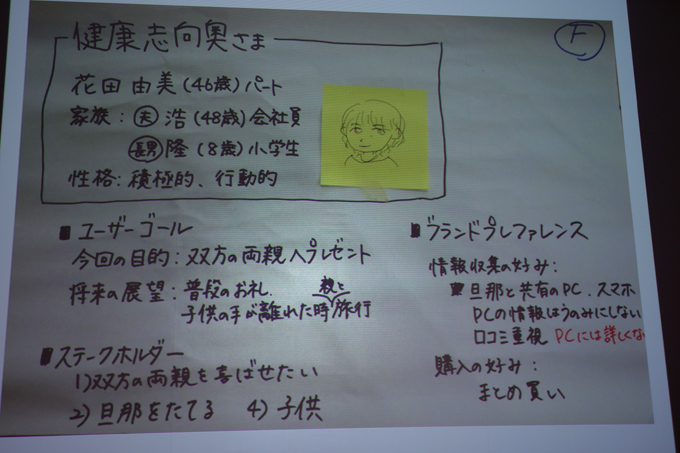 健康志向奥さま
F
花田由美(46歳)パート
家族:夫 浩(48歳)会社員
長男 隆(8歳)小学生
性格:積極的、行動的
■ユーザーゴール
今回の目的:双方の両親へプレゼント
将来の展望:普段のお礼
子供の手が離れた時親と旅行
■ステークホルダー
1)双方の両親を喜ばせたい
2)旦那をたてる 4)子供
■ブランドプレファレンス
情報収集の好み:
■旦那と共有のPC.スマホ
PCの情報はうのみにしない
口コミ重視 PCには詳しくな
購入の好み:
まとめ買い